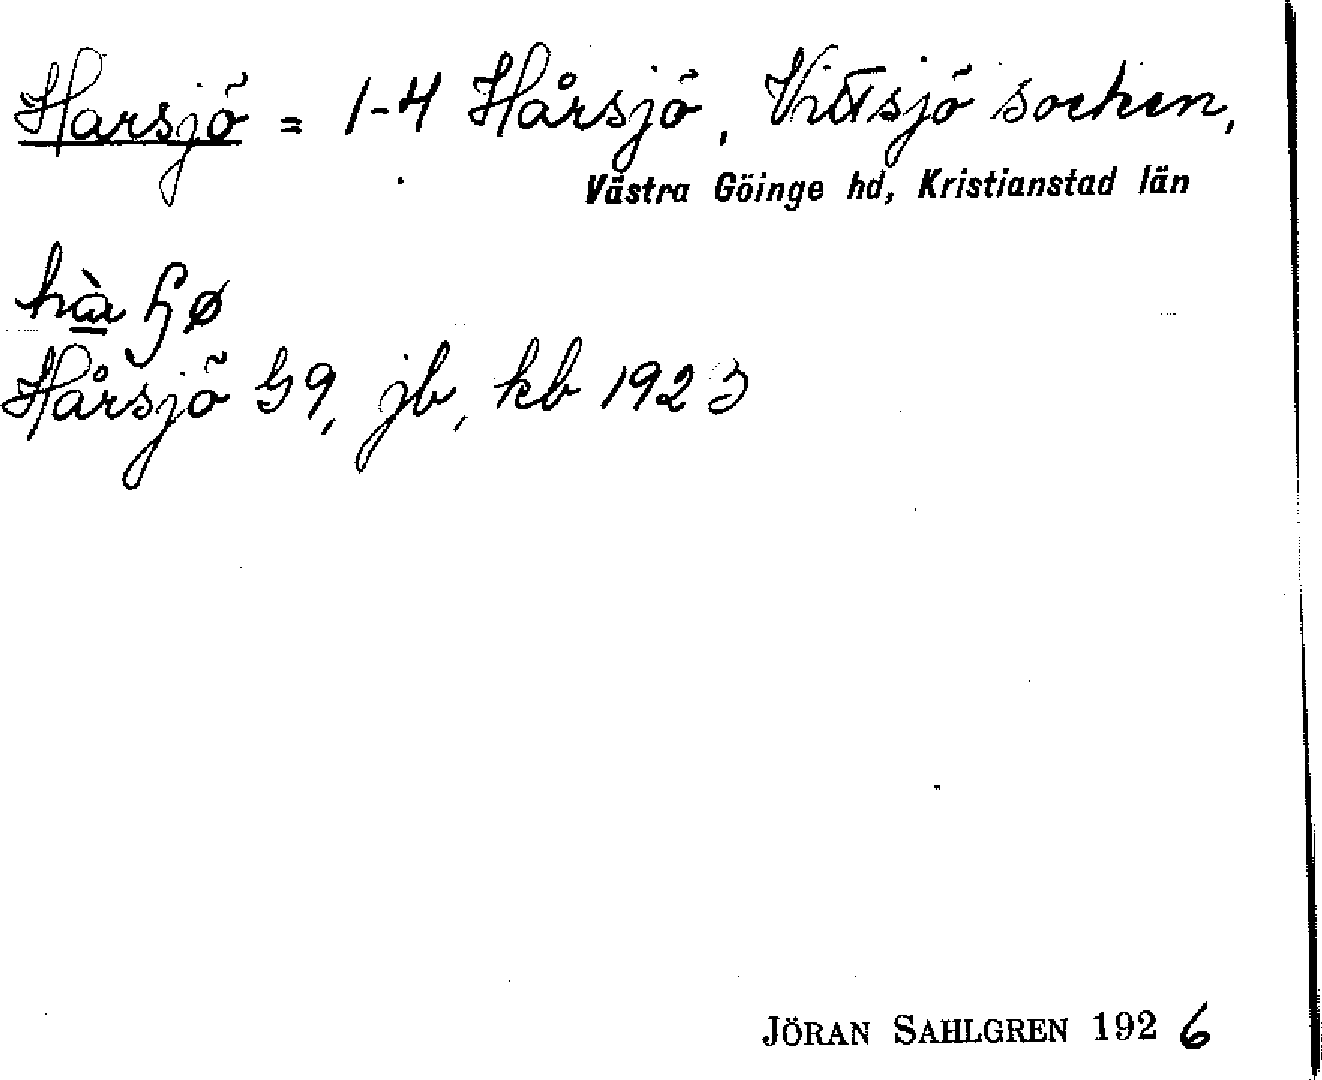 Harsjö = 1-4 Hårsjö, Vittsjö socken,
Västra Göinge hd, Kristianstad län
Hårsjö G9, jb, kb 1923
JÖRAN SAHLGREN 1926